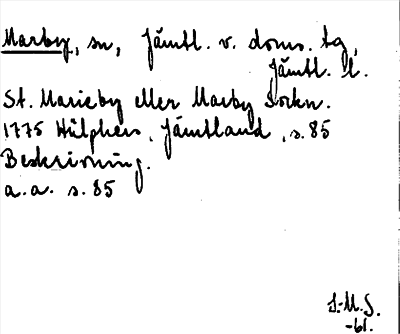 Marby, sn, Jämtl. v. doms. tg,
Jämtl. l.
St. Marieby eller Marby Sockn.
1775 Hülphers, Jämtland, s. 85
Beskrivning.
a.a. s. 85
I.M.S.
-61.